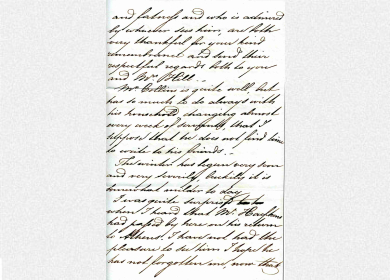 and fatness and who is admired
by whoever sees him, are both
very thankful for your kind
remembrance and send their
respectful regards both to you
and Mrs Hill. -
Mr Collins is quite well but
has so much to do always with
his household changing almost
every week that I
suppose that he does not find time
to write to his friends. -
The winter has begun very soon
and very severely, luckily it is
somewhat milder to day
I was quite surprised
when I heard that Mr.
had passed by here on his return
to Athens. I have not had the
pleasure to see him I hope he
has not forgotten me, now that